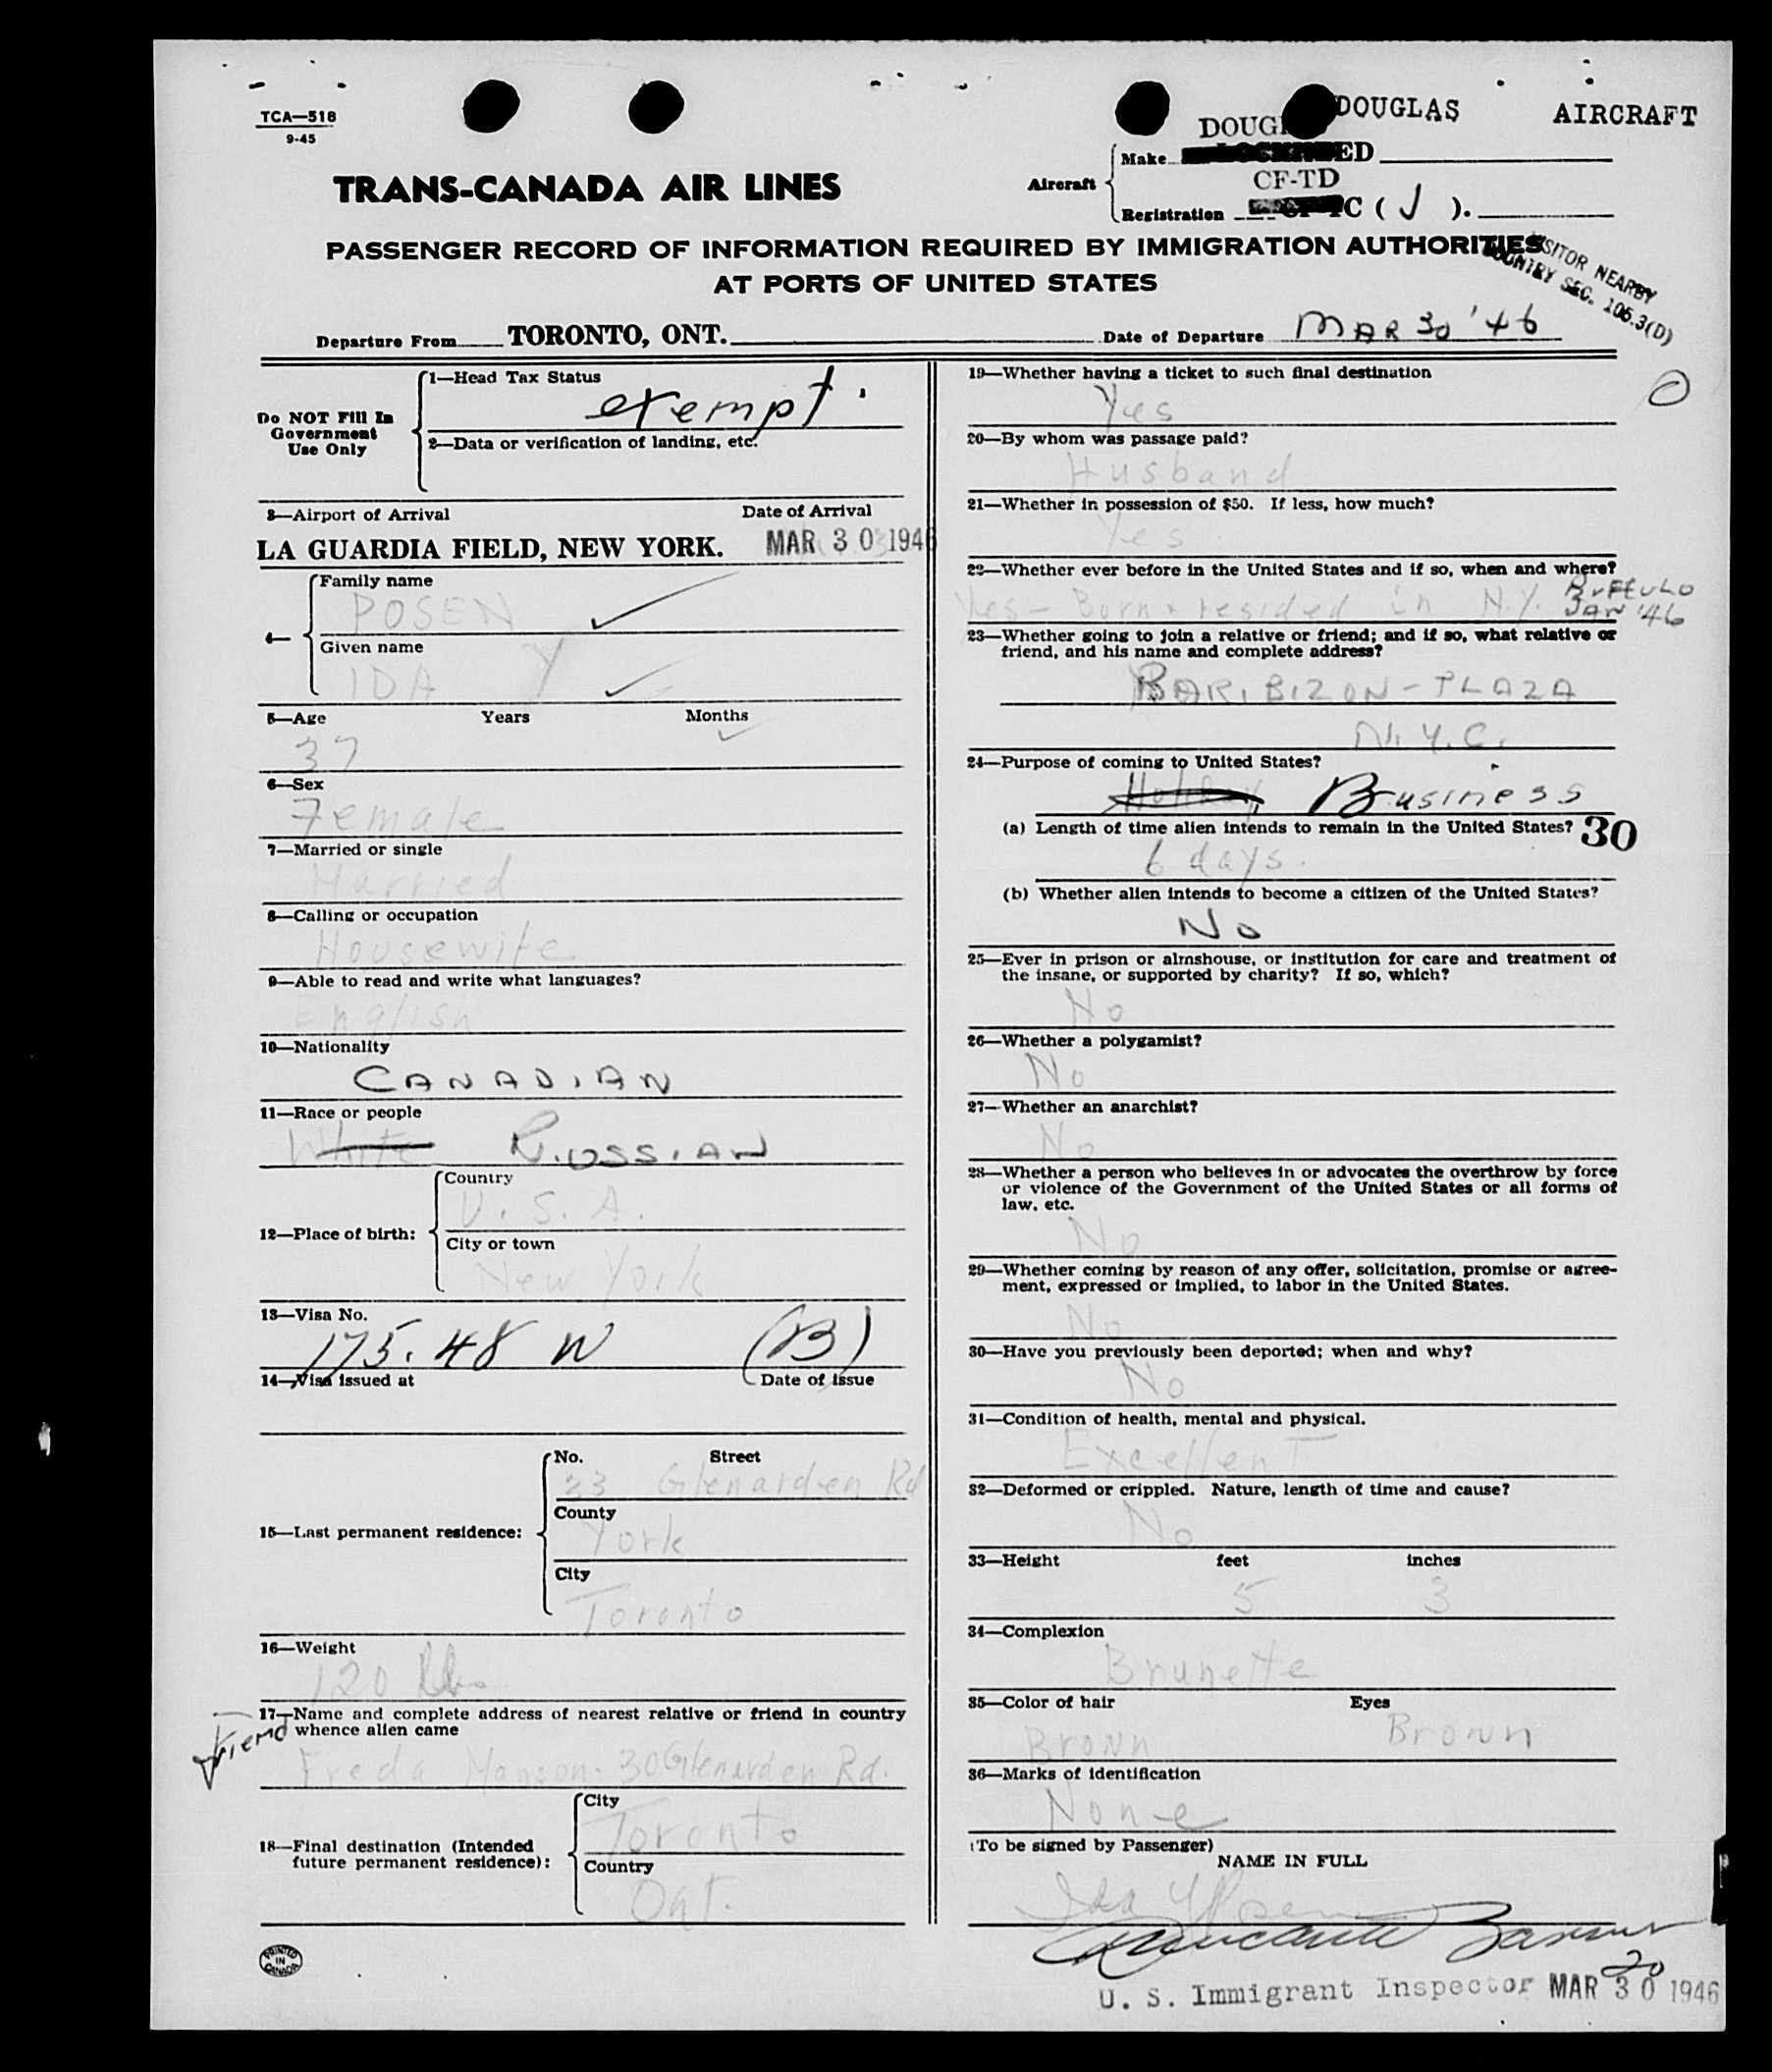 TCA—518
9-45
DOUGLAS AIRCRAFT
TRANS-CANADA AIR LINES
Aircraft
Make
Registration
CF-TD
C ( J ).
PASSENGER RECORD OF INFORMATION REQUIRED BY IMMIGRATION AUTHORITIES
AT PORTS OF UNITED STATES
VISITOR NEARBY
COUNTRY SEC. 105.3(D)
Departure From TORONTO, ONT.
Date of Departure MAR 30 '46
Do NOT Fill In
Government
Use Only
1—Head Tax Status
exempt
2—Data or verification of landing, etc.
3—Airport of Arrival Date of Arrival
LA GUARDIA FIELD, NEW YORK. MAR 30 1946
4—
Family name
POSEN
Given name
IDA Y
5—Age Years Months
37
6—Sex
Female
7—Married or single
Married
8—Calling or occupation
Housewife
9—Able to read and write what languages?
English
10—Nationality
CANADIAN
11—Race or people
White RUSSIAN
12—Place of birth:
Country
U.S.A.
City or town
New York
13—Visa No.
175.48 W (B)
14—Visa issued at Date of issue
15—Last permanent residence:
No. Street
33 Glenarden Rd
County
York
City
Toronto
16—Weight
120 lbs
17—Name and complete address of nearest relative or friend in country
whence alien came
Friend
Freda Monson. 30 Glenarden Rd.
18—Final destination (Intended
future permanent residence):
City
Toronto
Country
Ont.
PRINTED
IN
CANADA
19—Whether having a ticket to such final destination
Yes
20—By whom was passage paid?
Husband
21—Whether in possession of $50. If less, how much?
Yes
22—Whether ever before in the United States and if so, when and where?
Yes - Born & resided in N.Y. BUFFULO
JAN '46
23—Whether going to join a relative or friend; and if so, what relative or
friend, and his name and complete address?
BARIBIZON-PLAZA
N.Y.C.
24—Purpose of coming to United States?
Holiday Business
(a) Length of time alien intends to remain in the United States? 30
6 days.
(b) Whether alien intends to become a citizen of the United States?
No
25—Ever in prison or almshouse, or institution for care and treatment of
the insane, or supported by charity? If so, which?
No
26—Whether a polygamist?
No
27—Whether an anarchist?
No
28—Whether a person who believes in or advocates the overthrow by force
or violence of the Government of the United States or all forms of
law, etc.
No
29—Whether coming by reason of any offer, solicitation, promise or agree-
ment, expressed or implied, to labor in the United States.
No
30—Have you previously been deported; when and why?
No
31—Condition of health, mental and physical.
Excellent
32—Deformed or crippled. Nature, length of time and cause?
No
33—Height feet inches
5 3
34—Complexion
Brunette
35—Color of hair Eyes
Brown Brown
36—Marks of identification
None
(To be signed by Passenger)
NAME IN FULL
Ida Y Posen
20
U. S. Immigrant Inspector MAR 30 1946